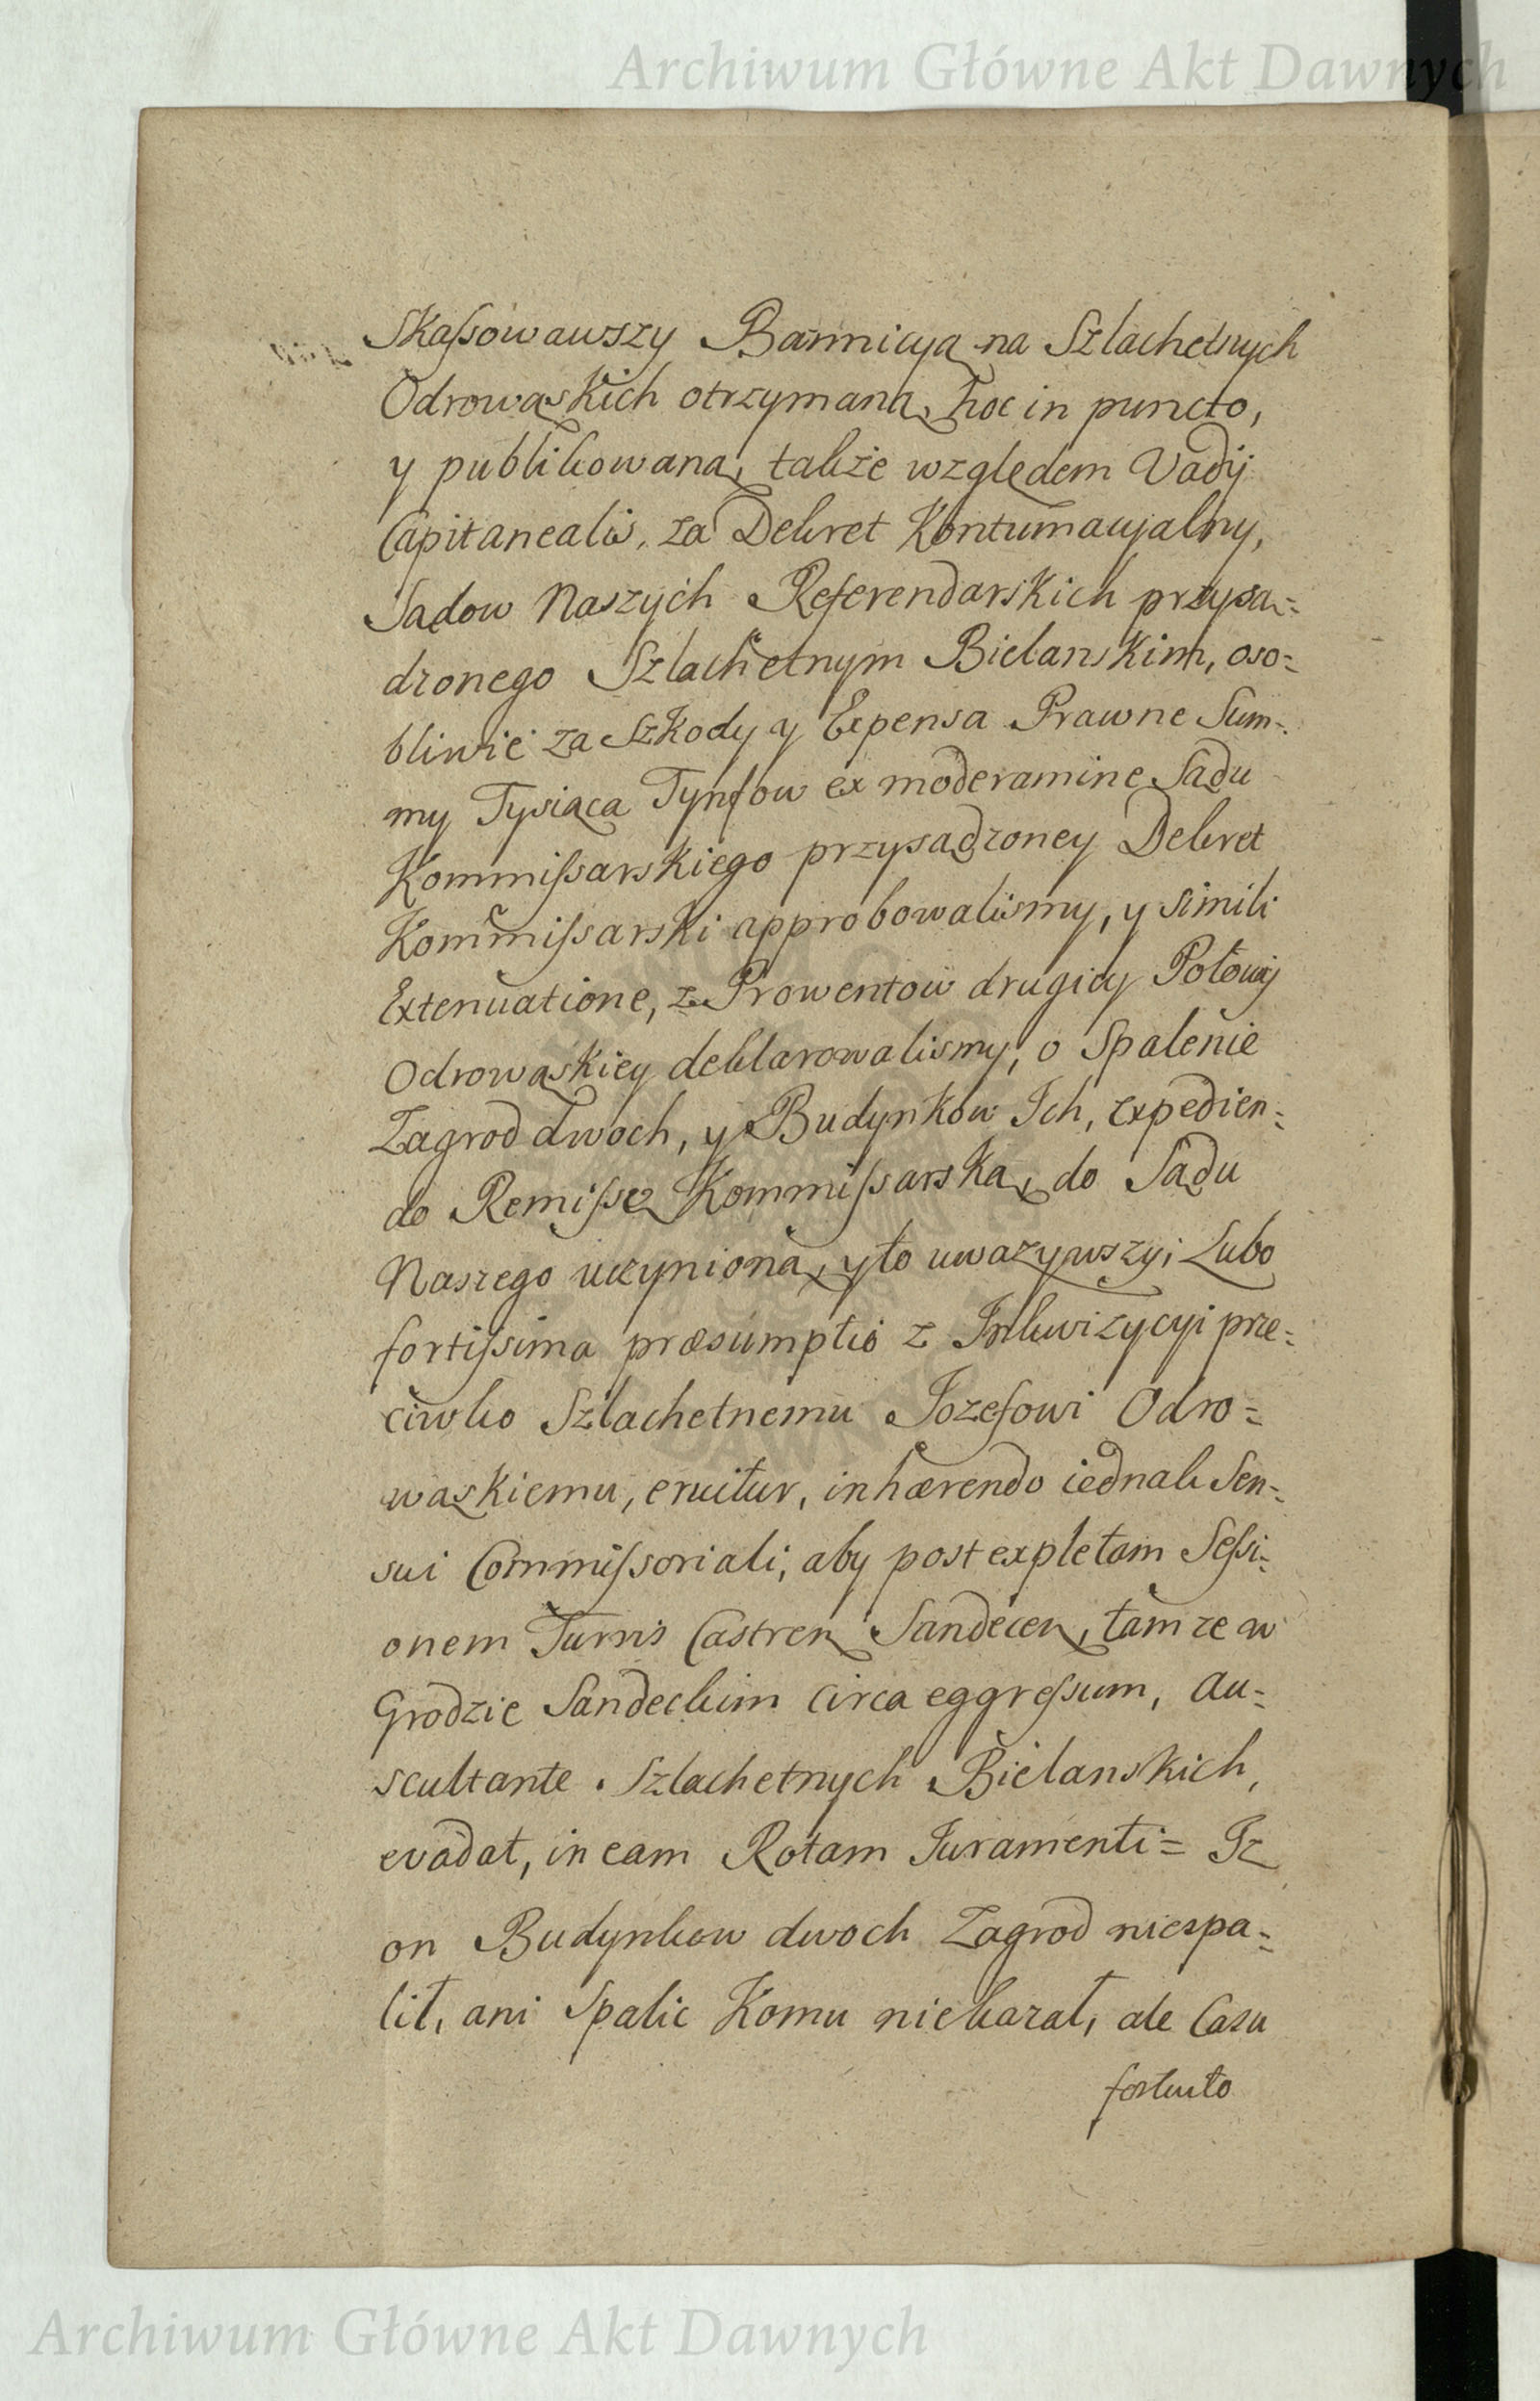 Archiwum Główne Akt Dawnych
Skassowawszy Bannicyą na Szlachetnych
Odrowąskich otrzymaną, hoc in puncto,
y publikowaną, także względem Vadij
Capitanealis, za Dekret Kontumacyalny,
Sądow Naszych Referendarskich przysą=
dzonego Szlachetnym Bielanskim, oso=
bliwie za Szkody y Expensa Prawne Sum=
my Tysiąca Tynfow ex moderamine Sądu
Kommissarskiego przysądzoney Dekret
Kommissarski approbowalismy, y simili
Extenuatione, z Prowentow drugiey Połowy
Odrowąskiey deklarowalismy, o Spalenie
Zagrod dwoch, y Budynkow Ich, expedien=
do Remissę Kommissarską, do Sądu
Naszego uczynioną, y to uwazywszy; Lubo
fortissima præsumptio z Inkwizycyi prze=
ciwko Szlachetnemu Jozefowi Odro=
wąskiemu, eruitur, inhærendo iednak Sen=
sui Commissoriali, aby post expletam Sessi=
onem Turris Castren Sandecen, tamze w
Grodzie Sandeckim circa eggressum, au=
scultante Szlachetnych Bielanskich,
evadat, in eam Rotam Juramenti= Iz
on Budynkow dwoch Zagrod niespa=
lił, ani Spalic Komu niekazał, ale Casu
fortuito
ARCHIWUM
DAWNYCH
Archiwum Główne Akt Dawnych